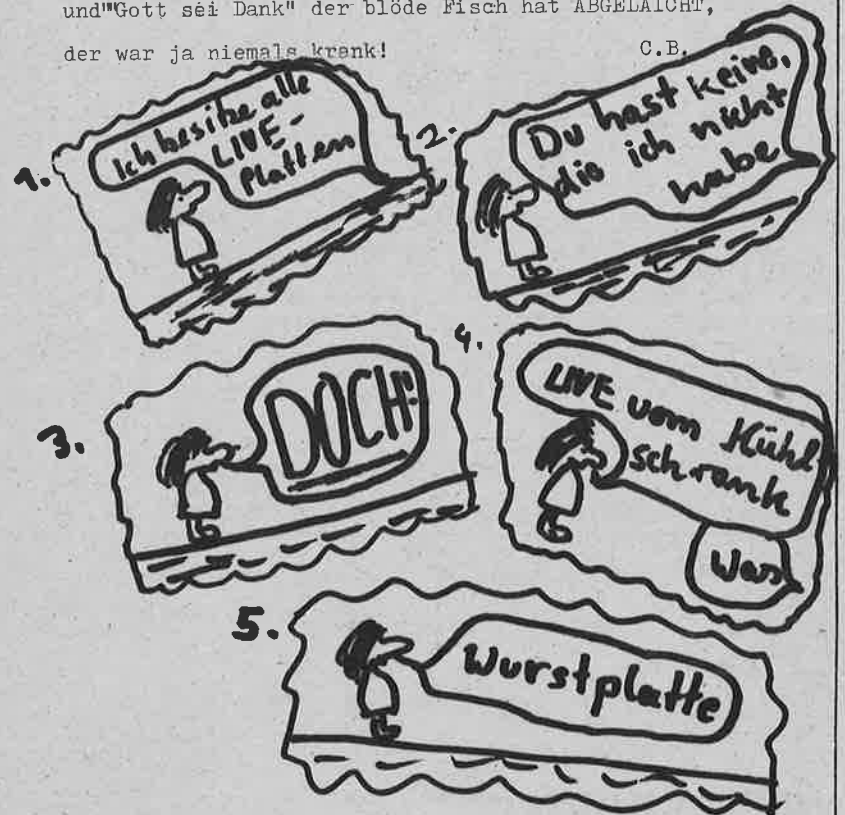 und""Gott sei Dank" der blöde Fisch hat ABGELAICHT,
der war ja niemals krank!
C.B.
1.
Ich besitze alle
LIVE-
Platten
2.
Du hast keine,
die ich nicht
habe
3.
DOCH!
4.
LIVE vom Kühl
schrank
Was
5.
Wurstplatte